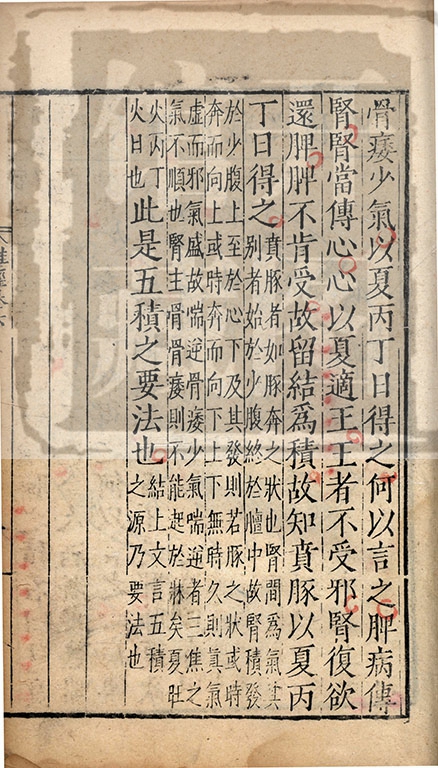 骨痿少氣以夏丙丁日得之何以言之脾病傳
腎腎當傳心心以夏適王王者不受邪腎復欲
還脾脾不肯受故留結爲積故知賁豚以夏丙
丁日得之賁豚者如豚奔之狀也腎間爲氣真
別者始於少腹終於膻中故腎積發
於少腹上至於心下及其發則若豚之狀或時
奔而向上或時奔而向下上下無時久則真氣
虛而邪氣盛故喘逆骨痿少氣喘逆者三焦之
氣不順也腎主骨骨痿則不能起於牀矣夏旺
火丙丁
火日也此是五積之要法也結上文言五積
之源乃要法也